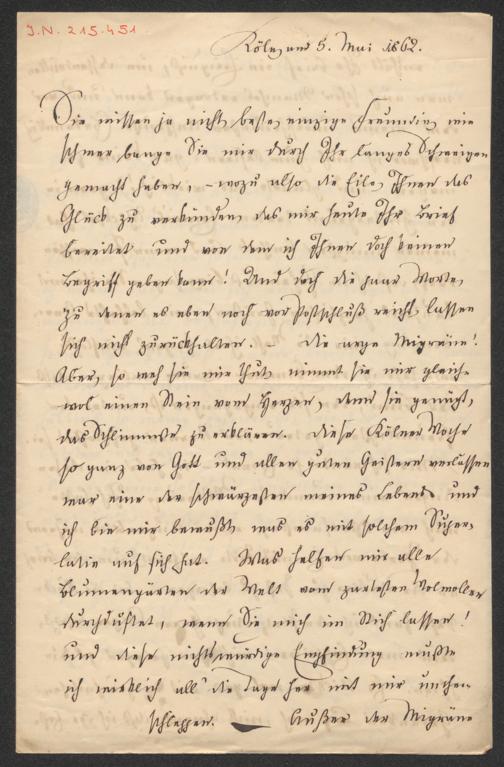 J.N. 215.451
Köln, am 5. Mai 1862.
Sie wissen ja nicht, beste, einzige Freundin, wie
schwer bange Sie mir durch Ihr langes Schweigen
gemacht haben, – wozu also die Eile, Ihnen das
Glück zu verkünden, das mir heute Ihr Brief
bereitet und von dem ich Ihnen doch keinen
Begriff geben kann! Und doch die paar Worte,
zu denen es eben noch vor Postschluß reicht, lassen
sich nicht zurückhalten. – Die arge Migräne!
Aber, so weh sie mir thut, nimmt sie mir gleich-
wol einen Stein vom Herzen, denn sie genügt,
das Schlimmste zu erklären. Diese Kölner Woche
so ganz von Gott und allen guten Geistern verlassen
war eine der schwärzesten meines Lebens und
ich bin mir bewußt, was es mit solchem Super-
lativ auf sich hat. Was helfen mir alle
Blumengärten der Welt vom zartesten Wolwollen
durchduftet, wenn Sie mich im Stich lassen!
und diese nichtswürdige Empfindung mußte
ich wirklich all' die Tage her mit mir umher-
schleppen. — Außer der Migräne